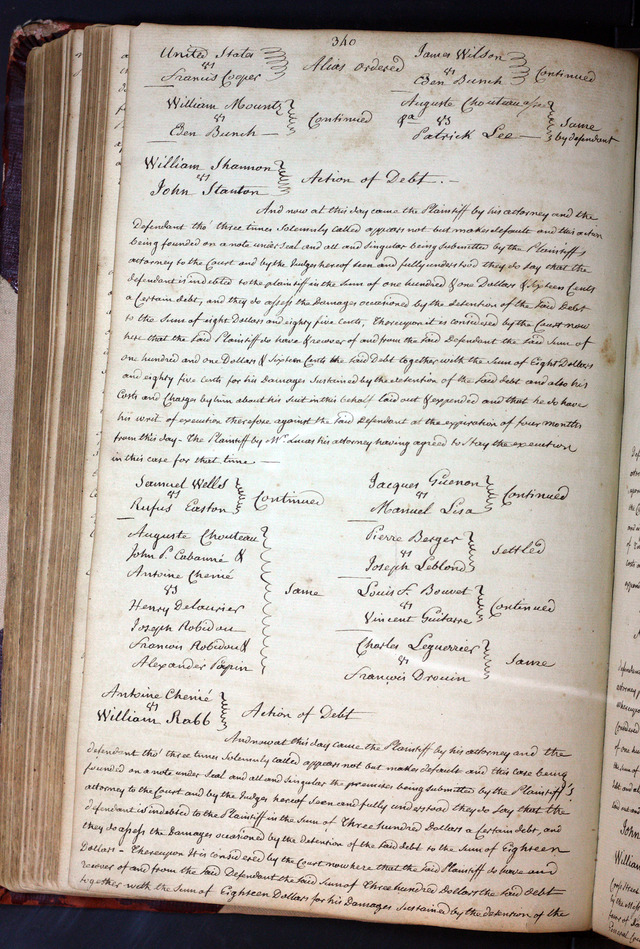 340
United States
vs
Francis Cooper
Alias ordered
James Wilson
vs
Eben Bunch
Continued
William Mounts
vs
Eben Bunch
Continued
Auguste Chouteau
vs
Patrick Lee
Same
by defendant
William Shannon
vs
John Stanton
Action of Debt. –
And now at this day came the Plaintiff by his attorney and the
Defendant tho' three times Solemnly called appears not but makes default and this action
being founded on a note under seal and all and singular being submitted by the Plaintiffs
attorney to the Court and by the Judges hereof seen and fully understood they do say that the
defendant is indebted to the plaintiff in the sum of one hundred & one Dollars & Sixteen Cents
a Certain debt, and they do assess the Damages occasioned by the detention of the said Debt
to the Sum of eight Dollars and eighty five Cents, Thereupon it is considered by the Court now
here that the said Plaintiff do have & recover of and from the said Defendant the said Sum of
one hundred and one Dollars & Sixteen Cents the said Debt together with the Sum of Eight Dollars
and eighty five Cents for his Damages Sustained by the detention of the said debt and also his
Costs and Charges by him about his Suit in this behalf laid out & expended and that he do have
his writ of execution therefore against the said Defendant at the expiration of four months
from this day - The Plaintiff by Mr. Lucas his attorney having agreed to Stay the execution
in this case for that time —
Samuel Wells
vs
Rufus Easton
Continued
Jacques Guenon
vs
Manuel Lisa
Continued
Auguste Chouteau
John P. Cabanné &
Antoine Chenié
vs
Henry Delaurier
Joseph Robidou
Francois Robidou &
Alexander Papin
Same
Pierre Berger
vs
Joseph Leblond
Settled
Louis F. Bouvet
vs
Vincent Guitarre
Continued
Charles Leguerrier
vs
Francois Drouin
Same
Antoine Chenié
vs
William Rabb
Action of Debt
And now at this day came the Plaintiff by his attorney and the
defendant tho' three times Solemnly called appears not but makes default and this case being
founded on a note under Seal and all and singular the premises being submitted by the Plaintiff's
attorney to the Court and by the Judges hereof Seen and fully understood they do Say that the
defendant is indebted to the Plaintiff in the Sum of Three hundred Dollars a Certain debt, and
they do assess the Damages occasioned by the detention of the said debt to the Sum of Eighteen
Dollars - Thereupon It is considered by the Court now here that the said Plaintiff do have and
recover of and from the said Defendant the said Sum of Three hundred Dollars the said debt
together with the Sum of Eighteen Dollars for his Damages Sustained by the detention of the